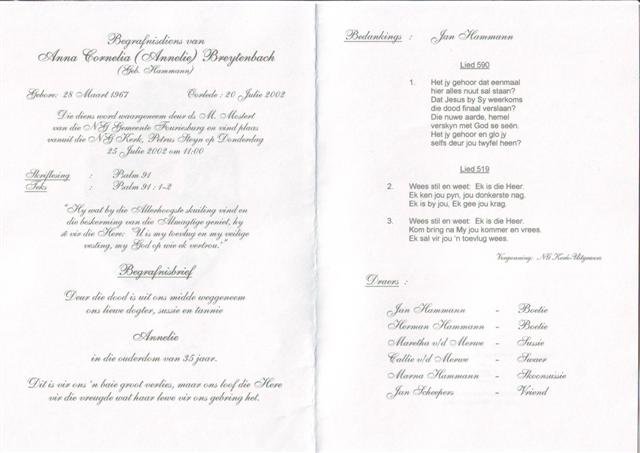 Begrafnisdiens van
Anna Cornelia (Annelie) Breytenbach
(Geb. Hammann)
Gebore: 28 Maart 1967 Oorlede : 20 Julie 2002
Die diens word waargeneem deur ds. M. Mostert
van die NG Gemeente Fouriesburg en vind plaas
vanuit die NG Kerk, Petrus Steyn op Donderdag
25 Julie 2002 om 11:00
Skriflesing : Psalm 91
Teks : Psalm 91 : 1-2
"Hy wat by die Allerhoogste skuiling vind en
die beskerming van die Almagtige geniet, hy
sê vir die Here: 'U is my toevlug en my veilige
vesting, my God op wie ek vertrou.'"
Begrafnisbrief
Deur die dood is uit ons midde weggeneem
ons liewe dogter, sussie en tannie
Annelie
in die ouderdom van 35 jaar.
Dit is vir ons 'n baie groot verlies, maar ons loof die Here
vir die vreugde wat haar lewe vir ons gebring het.
Bedankings : Jan Hammann
Lied 590
1. Het jy gehoor dat eenmaal
hier alles nuut sal staan?
Dat Jesus by Sy weerkoms
die dood finaal verslaan?
Die nuwe aarde, hemel
verskyn met God se seën.
Het jy gehoor en glo jy
selfs deur jou twyfel heen?
Lied 519
2. Wees stil en weet: Ek is die Heer.
Ek ken jou pyn, jou donkerste nag.
Ek is by jou, Ek gee jou krag.
3. Wees stil en weet: Ek is die Heer.
Kom bring na My jou kommer en vrees.
Ek sal vir jou 'n toevlug wees.
Vergunning: NG Kerk-Uitgewers
Draers :
Jan Hammann - Boetie
Herman Hammann - Boetie
Maretha v/d Merwe - Sussie
Callie v/d Merwe - Swaer
Marna Hammann - Skoonsussie
Jan Scheepers - Vriend